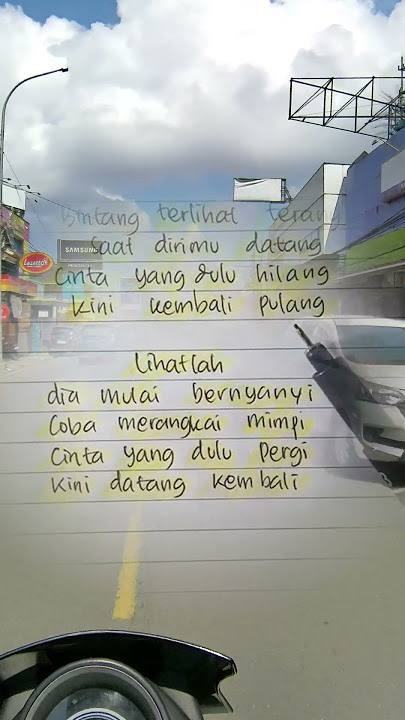 Bintang terlihat terang
Saat dirimu datang
Cinta yang dulu hilang
kini kembali pulang
SAMSUNG
Lihatlah
dia mulai bernyanyi
Coba merangkai mimpi
Cinta yang dulu pergi
kini datang kembali